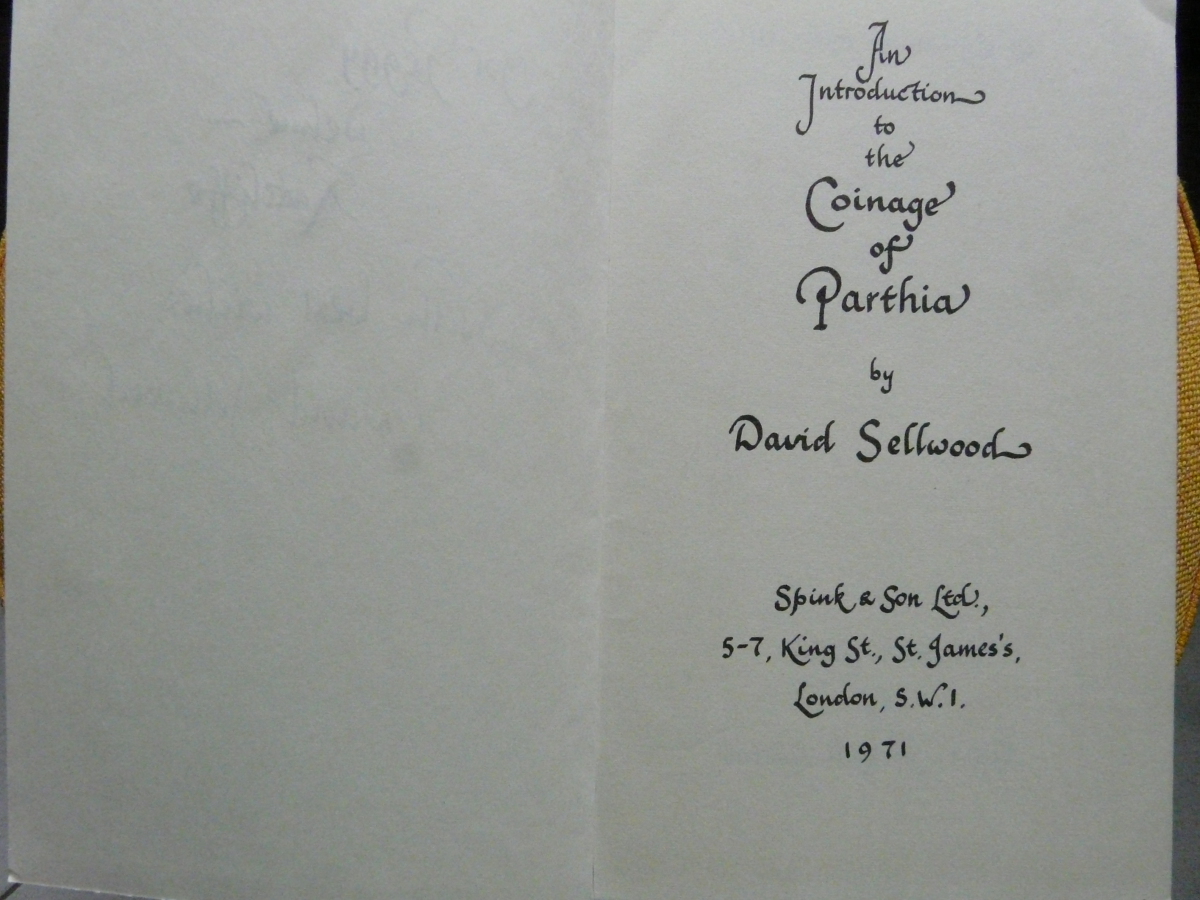 An
Introduction
to
the
Coinage
of
Parthia
by
David Sellwood
Spink & Son Ltd.,
5-7, King St., St. James's,
London, S.W.1.
1971